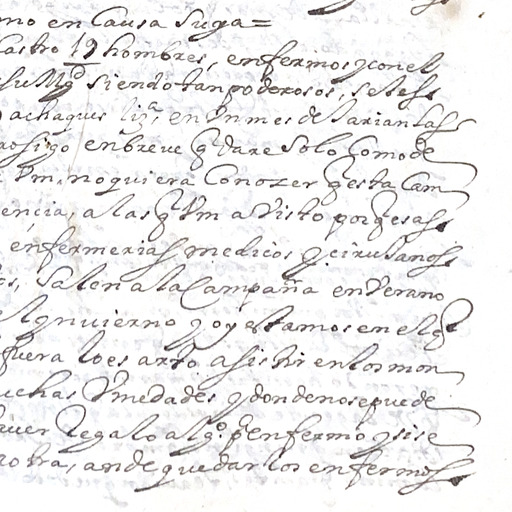 mo en Causa Suya=
Castro 19 hombres, enfermos y con el
su Mgd siendo tan poderosos, se les
achaques liza, en Un mes dejarian las
rosigo en breve qdare Solo Como de
Vm, no quiera Conozer qesta Cam
encia, a las q Vm a Visto porqesas
enfermerias medicos y cirujanos
os, Salen a la Campaña en Verano
el ynuierno y oy estamos en el q
fuera lo es arto asistir en los mon
uchas Vmedades y donde no se puede
auer Regalo algo. pa enfermo y si se
rotra, an de quedar los enfermos